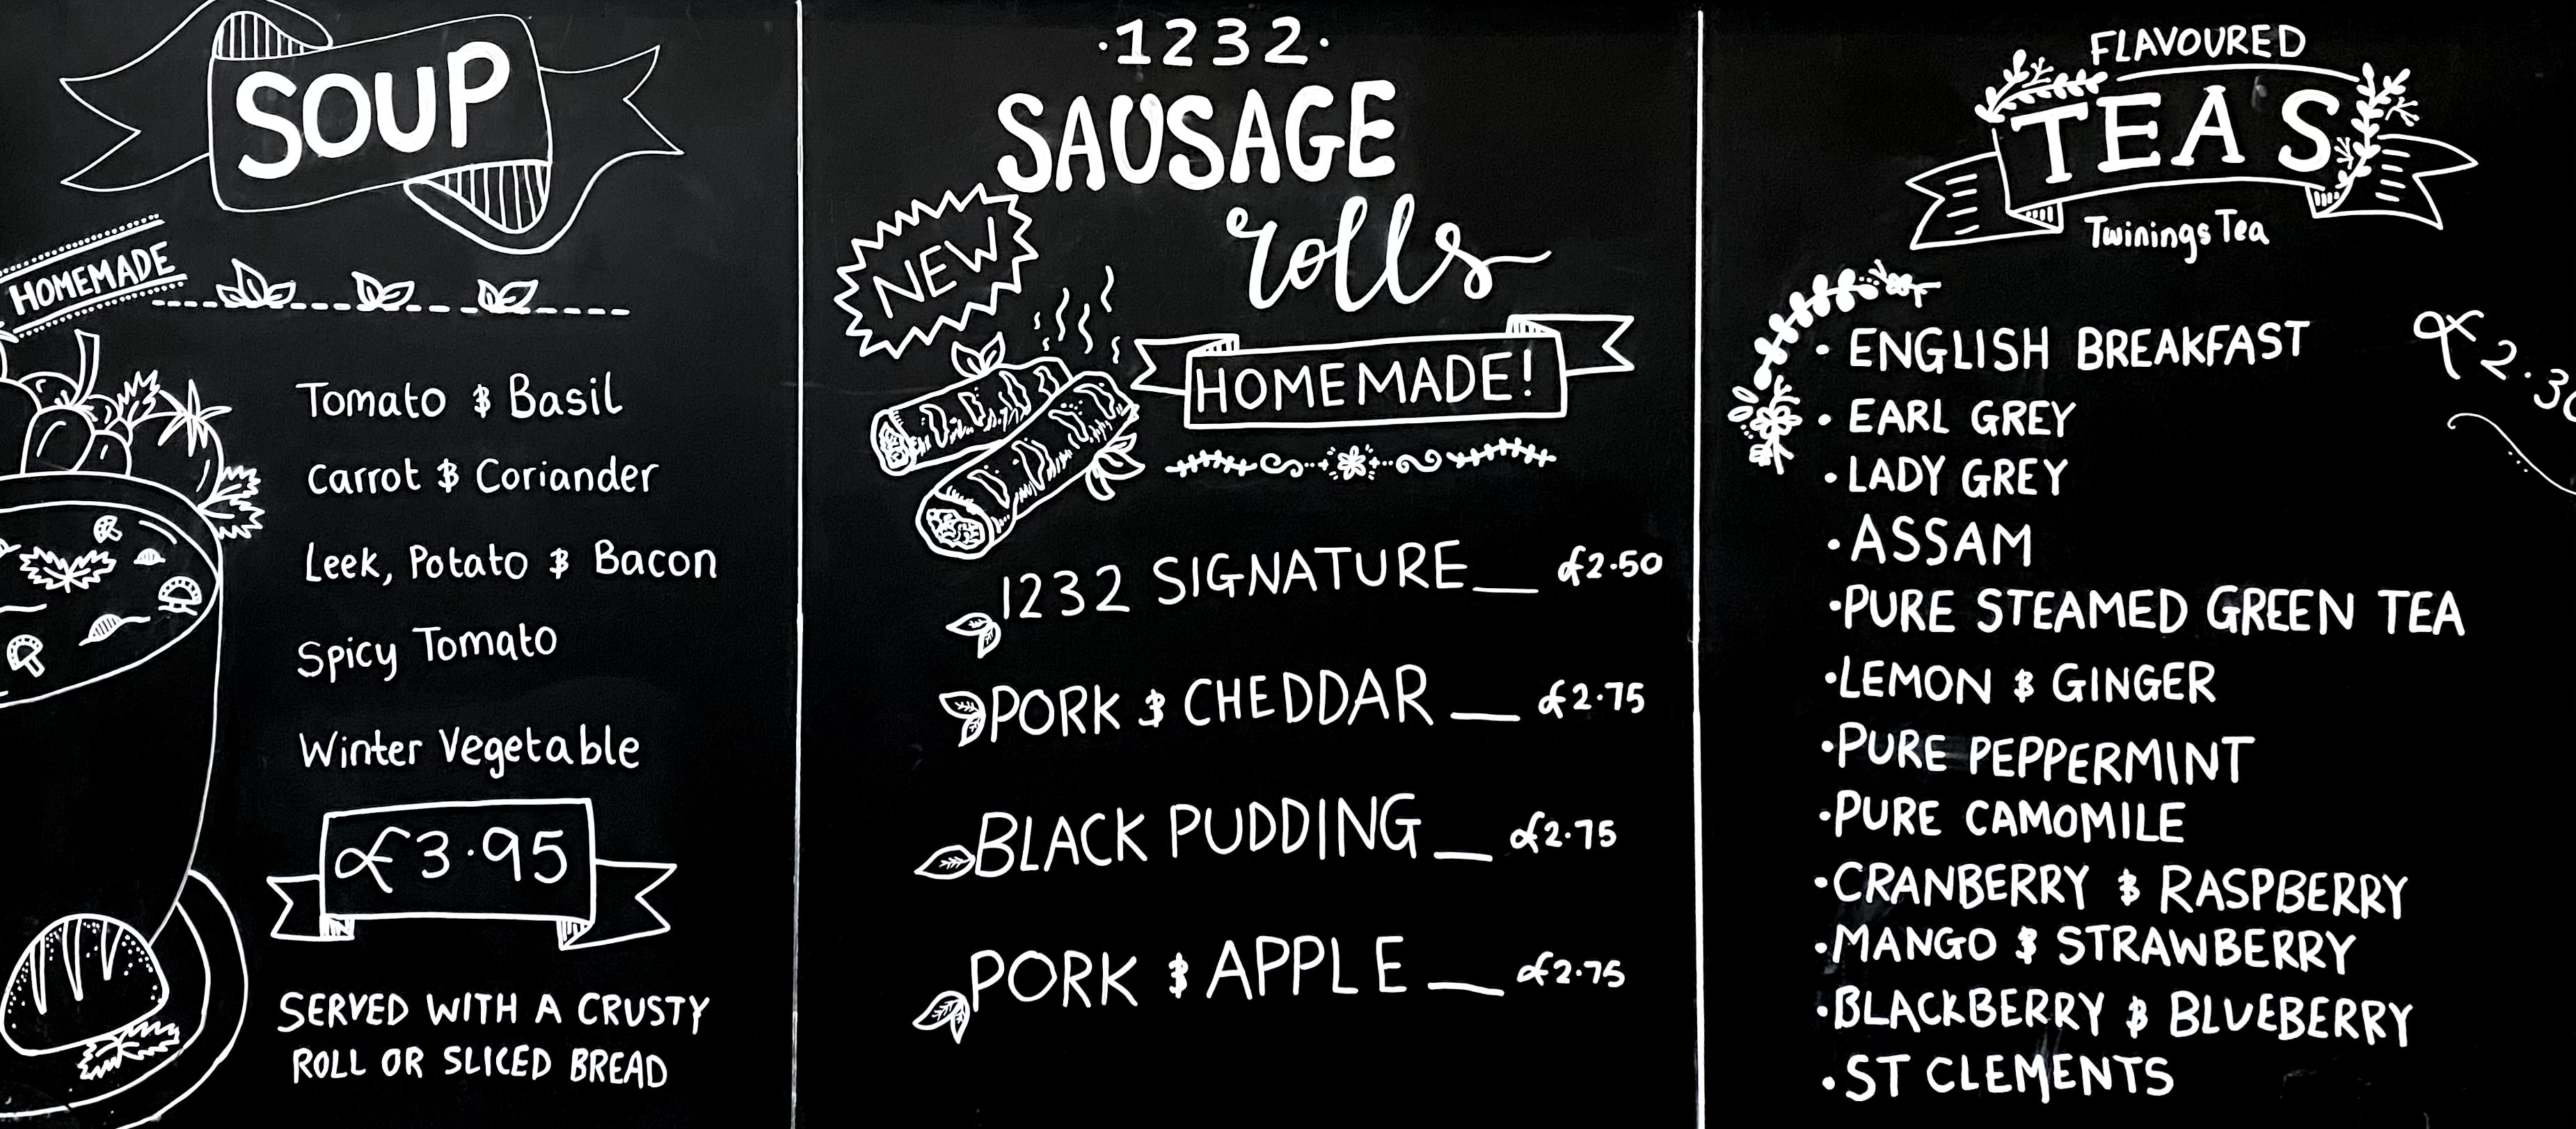 SOUP
HOMEMADE
Tomato & Basil
Carrot & Coriander
Leek, Potato & Bacon
Spicy Tomato
Winter Vegetable
£3.95
SERVED WITH A CRUSTY
ROLL OR SLICED BREAD
·1232·
SAUSAGE
rolls
NEW
HOMEMADE!
1232 SIGNATURE __ £2.50
PORK & CHEDDAR __ £2.75
BLACK PUDDING __ £2.75
PORK & APPLE __ £2.75
FLAVOURED
TEAS
Twinings Tea
£2.30
· ENGLISH BREAKFAST
· EARL GREY
· LADY GREY
· ASSAM
· PURE STEAMED GREEN TEA
· LEMON & GINGER
· PURE PEPPERMINT
· PURE CAMOMILE
· CRANBERRY & RASPBERRY
· MANGO & STRAWBERRY
· BLACKBERRY & BLUEBERRY
· ST CLEMENTS